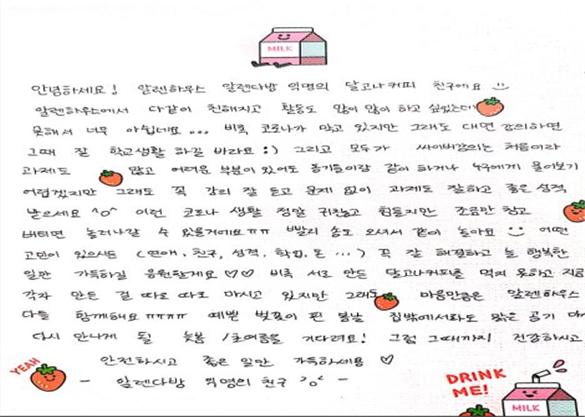 MILK
안녕하세요! 알렌하우스 알렌다방 익명의 달고나커피 친구에요
알렌하우스에서 다같이 친해지고 활동도 많이 많이 하고 싶었는데
못해서 너무 아쉽네요... 비록 코로나가 막고 있지만 그래도 대면 강의하면
그때 잘 학교생활 하길 바라요 :) 그리고 모두가 싸이버강의는 처음이라
과제도 많고 어려운 부분이 있어도 동기들이랑 같이 하거나 누구에게 물어보기
어렵겠지만 그래도 꼭 강의 잘 듣고 문제 없이 과제도 잘하고 좋은 성적
낳으세요 ^o^ 이런 코로나 생활 정말 귀찮고 힘들지만 조금만 참고
버티면 놀러나갈 수 있을거에요ㅠㅠ 빨리 송도 오셔서 같이 놀아요 어떤
고민이 있으시든 (연애, 친구, 성격, 학업, 돈...) 꼭 잘 해결하고 늘 행복한
일만 가득하길 응원할게요 ♡♡ 비록 서로 만든 달고나커피를 먹지 못하고 지금
각자 만든 걸 따로 따로 마시고 있지만 그래도 마음만큼은 알렌하우스
다들 함께해요 ㅠㅠㅠㅠ 예쁜 벚꽃이 핀 봄날 집밖에서라도 맑은 공기 마
다시 만나게 될 늦봄/초여름을 기다려요! 그럼 그때까지 건강하시고
안전하시고 좋은 일만 가득하세용 ♡
- 알렌다방 익명의 친구 ^o^ -
YEAH
DRINK
ME!
MILK